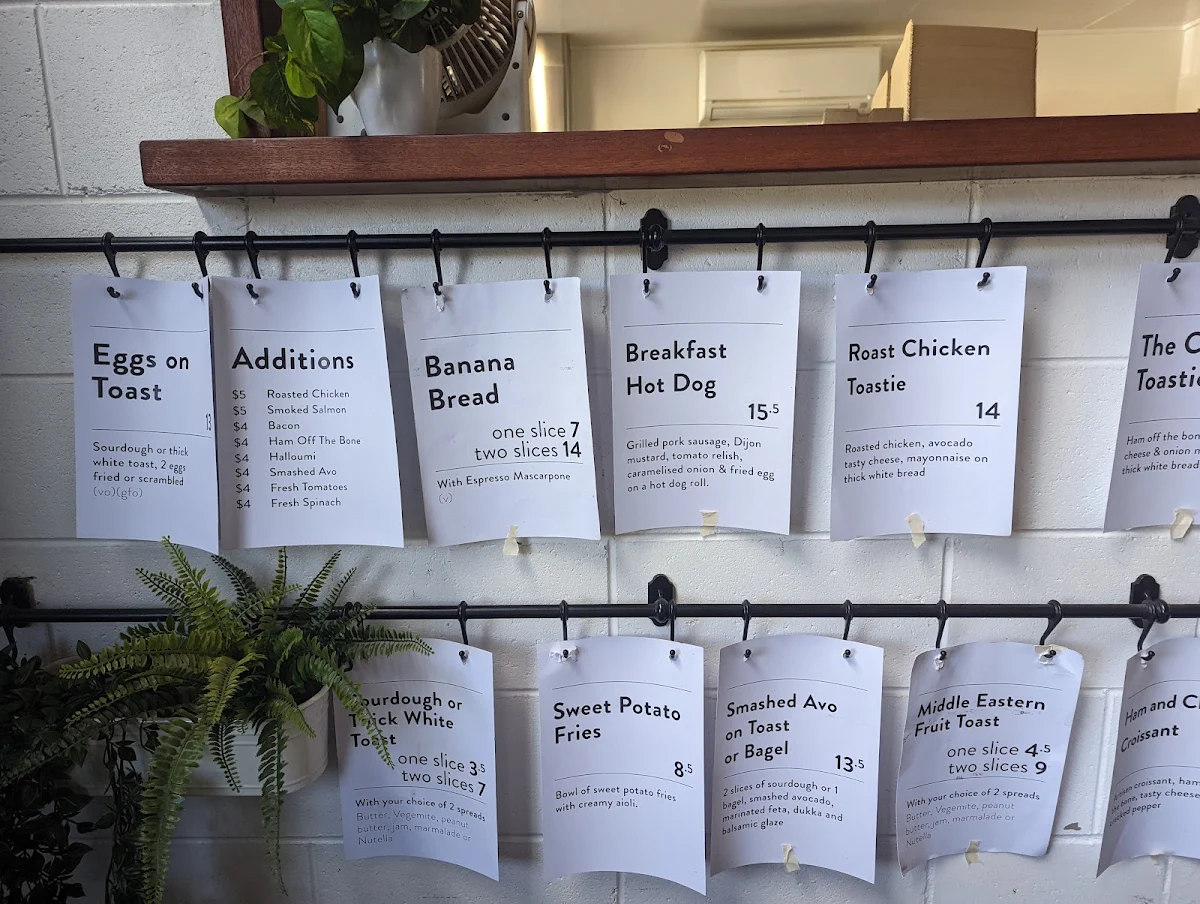 Eggs on
Toast
13
Sourdough or thick
white toast, 2 eggs
fried or scrambled
(vo)(gfo)
Additions
$5 Roasted Chicken
$5 Smoked Salmon
$4 Bacon
$4 Ham Off The Bone
$4 Halloumi
$4 Smashed Avo
$4 Fresh Tomatoes
$4 Fresh Spinach
Banana
Bread
one slice 7
two slices 14
With Espresso Mascarpone
(v)
Breakfast
Hot Dog
15.5
Grilled pork sausage, Dijon
mustard, tomato relish,
caramelised onion & fried egg
on a hot dog roll.
Roast Chicken
Toastie
14
Roasted chicken, avocado
tasty cheese, mayonnaise on
thick white bread
The C
Toastie
Ham off the bon
cheese & onion m
thick white bread
ourdough or
Thick White
Toast
one slice 3.5
two slices 7
With your choice of 2 spreads
Butter, Vegemite, peanut
butter, jam, marmalade or
Nutella
Sweet Potato
Fries
8.5
Bowl of sweet potato fries
with creamy aioli.
Smashed Avo
on Toast
or Bagel
13.5
2 slices of sourdough or 1
bagel, smashed avocado,
marinated feta, dukka and
balsamic glaze
Middle Eastern
Fruit Toast
one slice 4.5
two slices 9
With your choice of 2 spreads
Butter, Vegemite, peanut
butter, jam, marmalade or
Nutella
Ham and C
Croissant
croissant, ham
the bone, tasty cheese
cracked pepper